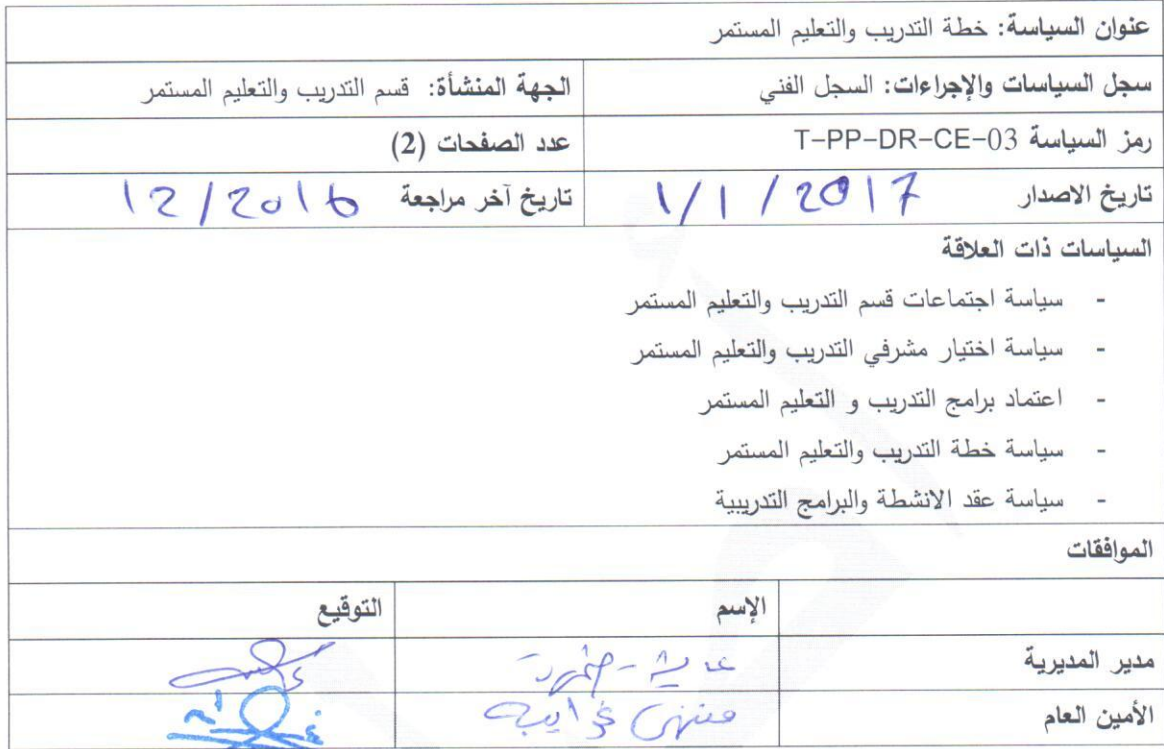 عنوان السياسة: خطة التدريب والتعليم المستمر
سجل السياسات والإجراءات: السجل الفني
الجهة المنشأة: قسم التدريب والتعليم المستمر
رمز السياسة T-PP-DR-CE-03
عدد الصفحات (2)
تاريخ الاصدار 1/1/2017
تاريخ آخر مراجعة 12/2016
السياسات ذات العلاقة
- سياسة اجتماعات قسم التدريب والتعليم المستمر
- سياسة اختيار مشرفي التدريب والتعليم المستمر
- اعتماد برامج التدريب و التعليم المستمر
- سياسة خطة التدريب والتعليم المستمر
- سياسة عقد الانشطة والبرامج التدريبية
الموافقات
الإسم
التوقيع
مدير المديرية
الأمين العام